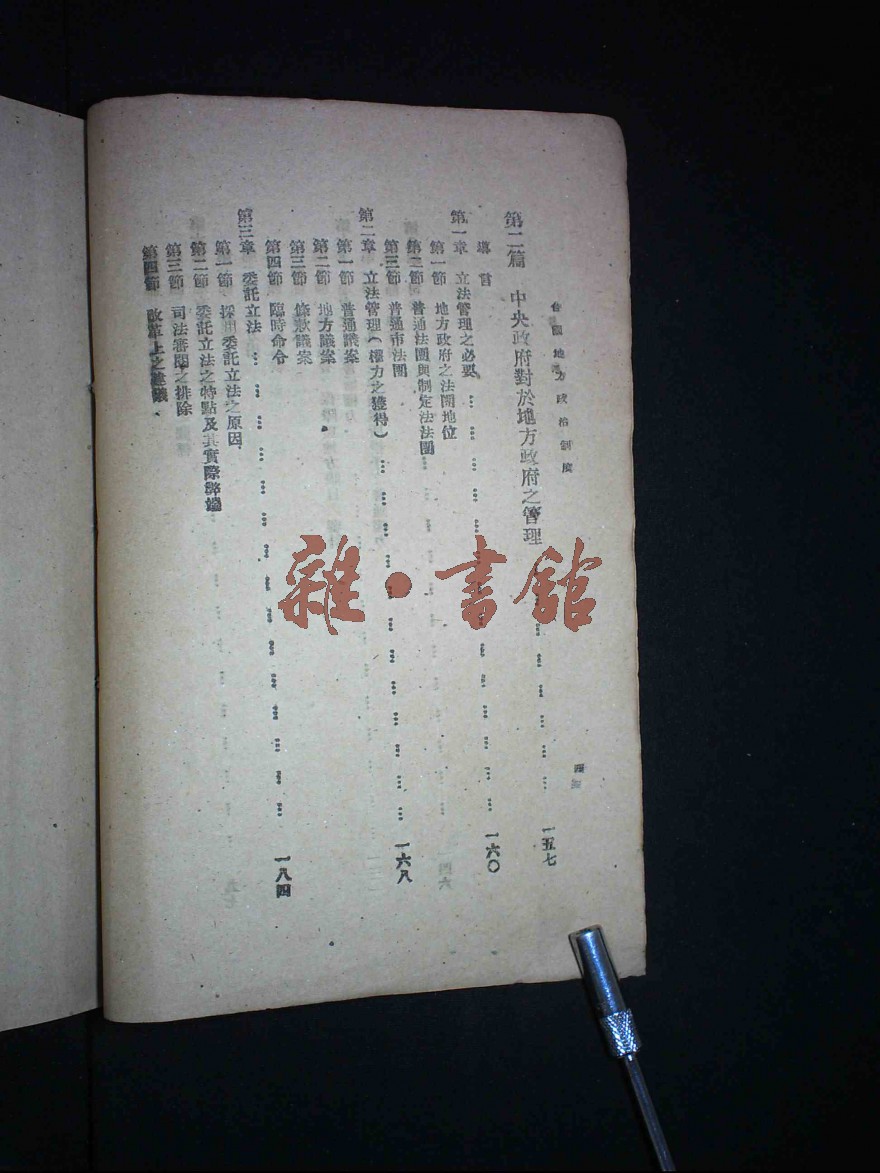 國地方政治制度
第二篇 中央政府對於地方政府之管理 一五七
導言
第一章 立法管理之必要 一六〇
第一節 地方政府之法團地位
第二節 普通法團與制定法法團
第三節 普通市法團
第二章 立法管理(權力之獲得) 一六八
第一節 普通議案
第二節 地方議案
第三節 條款議案
第四節 臨時命令
第三章 委託立法 一八四
第一節 採用委託立法之原因
第二節 委託立法之特點及其實際弊端
第三節 司法審問之排除
第四節 改革上之建議
雜·書館